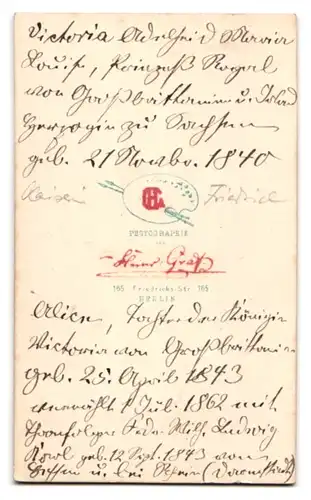 Victoria Adelheid Maria
Louise, Prinzeß Royal
von Großbrittannien u. Irland
Herzogin zu Sachsen
geb. 21 Novbr. 1840
Kaiserin Friedrich
PHOTOGRAPHIE
VON
Hans Graf
165 Friedrichs-Str. 165
BERLIN
Alice, Tochter der Königin
Victoria von Großbrittannien
geb. 25. April 1843
vermählt 1 Jul. 1862 mit
Thronfolger Frdr. Wilh. Ludwig
Karl geb. 12 Sept. 1843 von
Hessen u. bei Rhein (Darmstadt)